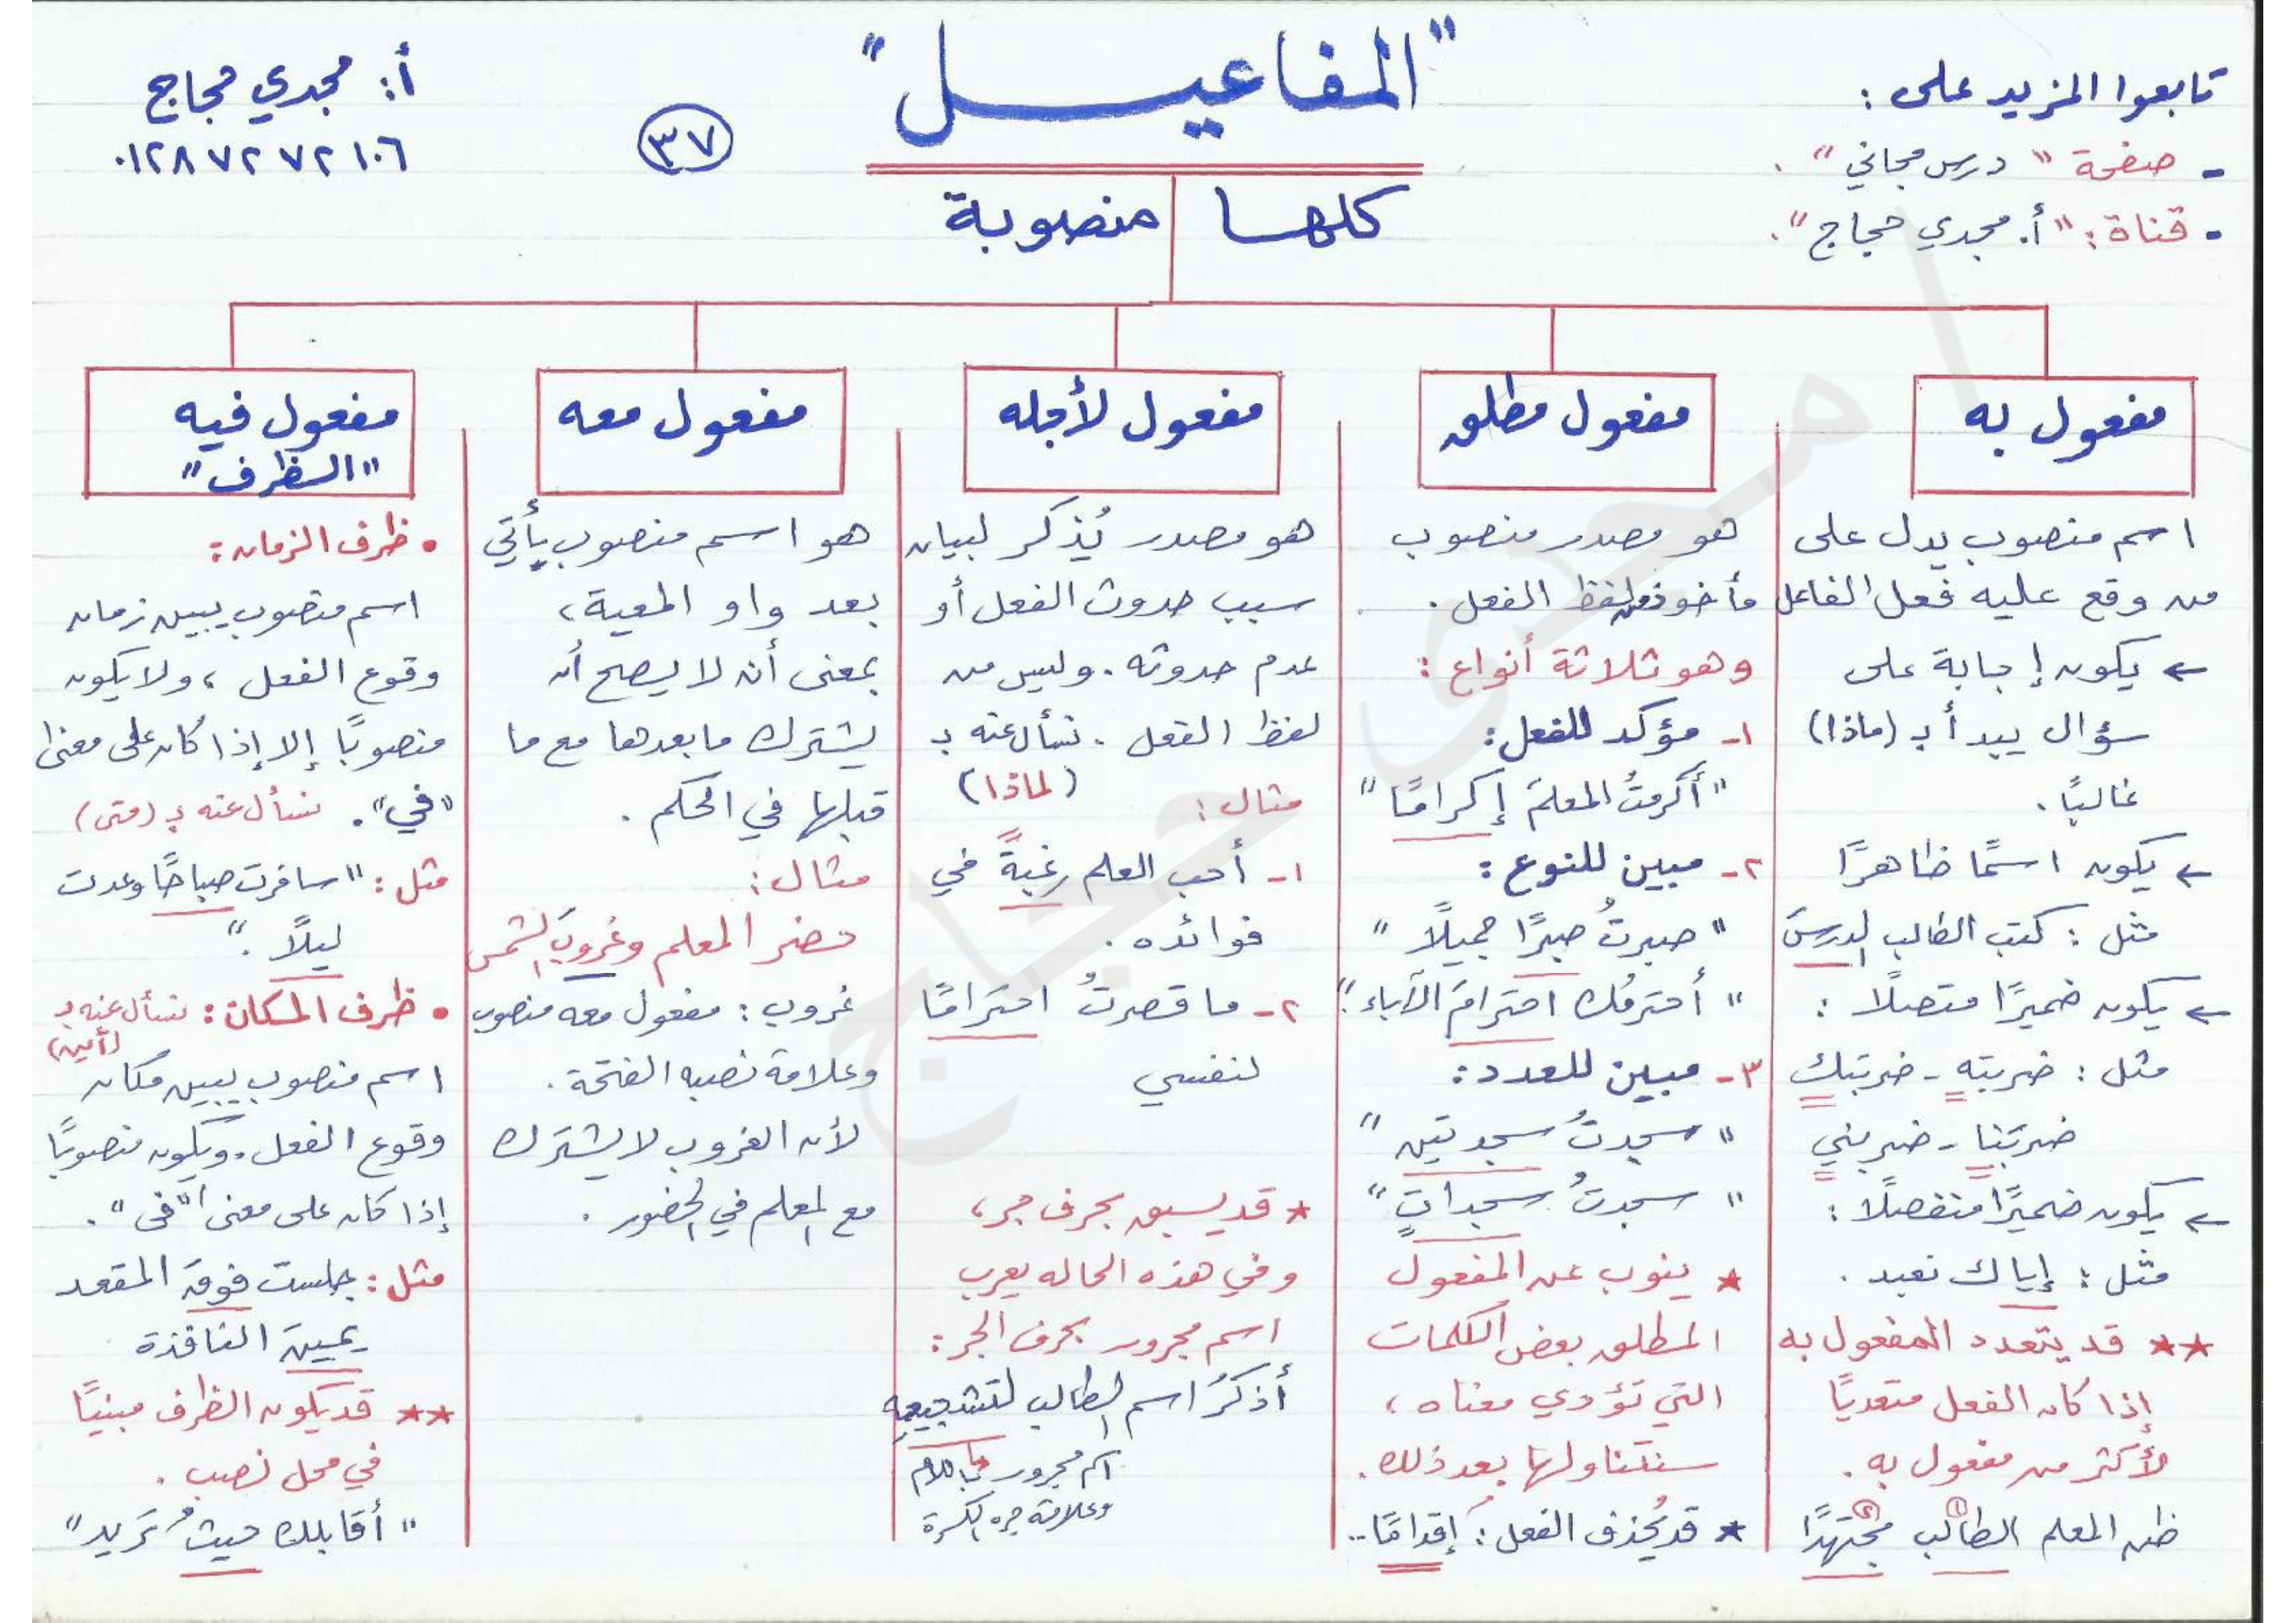 تابعوا المزيد على :
- صفحة " درس مجاني " .
- قناة : " أ. مجدي حجاج " .
" المفاعيـــل "
كلها منصوبة
٣٧
أ: مجدي حجاج
٠١٢٨٧٢٧٢١٠٦
مفعول به
اسم منصوب يدل على
من وقع عليه فعل الفاعل
← يكون إجابة على
سؤال يبدأ بـ (ماذا)
غالبًا .
← يكون اسمًا ظاهرًا
مثل : كتب الطالب الدرسَ
← يكون ضميرًا متصلًا :
مثل : ضربته - ضربتك
ضربَنا - ضربني
← يكون ضميرًا منفصلًا :
مثل : إياك نعبد .
** قد يتعدد المفعول به
إذا كان الفعل متعديًا
لأكثر من مفعول به .
ظن المعلم الطالب (١) مجتهدًا (٢)
مفعول مطلق
هو مصدر منصوب
مأخوذ من لفظ الفعل .
وهو ثلاثة أنواع :
١- مؤكد للفعل :
" أكرمتُ المعلمَ إكرامًا "
٢- مبين للنوع :
" صبرتُ صبرًا جميلًا "
" أحترمُك احترامَ الآباء "
٣- مبين للعدد :
" سجدتُ سجدتين "
" سجدتُ سجداتٍ "
* ينوب عن المفعول
المطلق بعض الكلمات
التي تؤدي معناه ،
سنتناولها بعد ذلك .
* قد يُحذف الفعل : إقدامًا..
مفعول لأجله
هو مصدر يُذكر لبيان
سبب حدوث الفعل أو
عدم حدوثه . وليس من
لفظ الفعل . نسأل عنه بـ
(لماذا)
مثال :
١- أحب العلم رغبةً في
فوائده .
٢- ما قصرتُ احترامًا
لنفسي
* قد يسبق بحرف جر ،
وفي هذه الحاله يعرب
اسم مجرور بحرف الجر :
أذكرُ اسم الطالب لتشجيعهِ
اسم مجرور باللام
وعلامة جره الكسرة
مفعول معه
هو اسم منصوب يأتي
بعد واو المعية ،
بمعنى أنه لا يصح أن
يشترك ما بعدها مع ما
قبلها في الحكم .
مثال :
حضر المعلم وغروبَ الشمس
غروب : مفعول معه منصوب
وعلامة نصبه الفتحة .
لأن الغروب لا يشترك
مع المعلم في الحضور .
مفعول فيه
" الظرف "
• ظرف الزمان :
اسم منصوب يبين زمان
وقوع الفعل ، ولا يكون
منصوبًا إلا إذا كان على معنى
" في " . نسأل عنه بـ (متى)
مثل : " سافرت صباحًا وعدت
ليلًا . "
• ظرف المكان : نسأل عنه بـ
(أين)
اسم منصوب يبين مكان
وقوع الفعل . ويكون منصوبًا
إذا كان على معنى " في " .
مثل : جلست فوقَ المقعد
يمينَ النافذة
** قد يكون الظرف مبنيًا
في محل نصب .
" أقابلك حيثُ تريد "
أ / مجدى حجاج